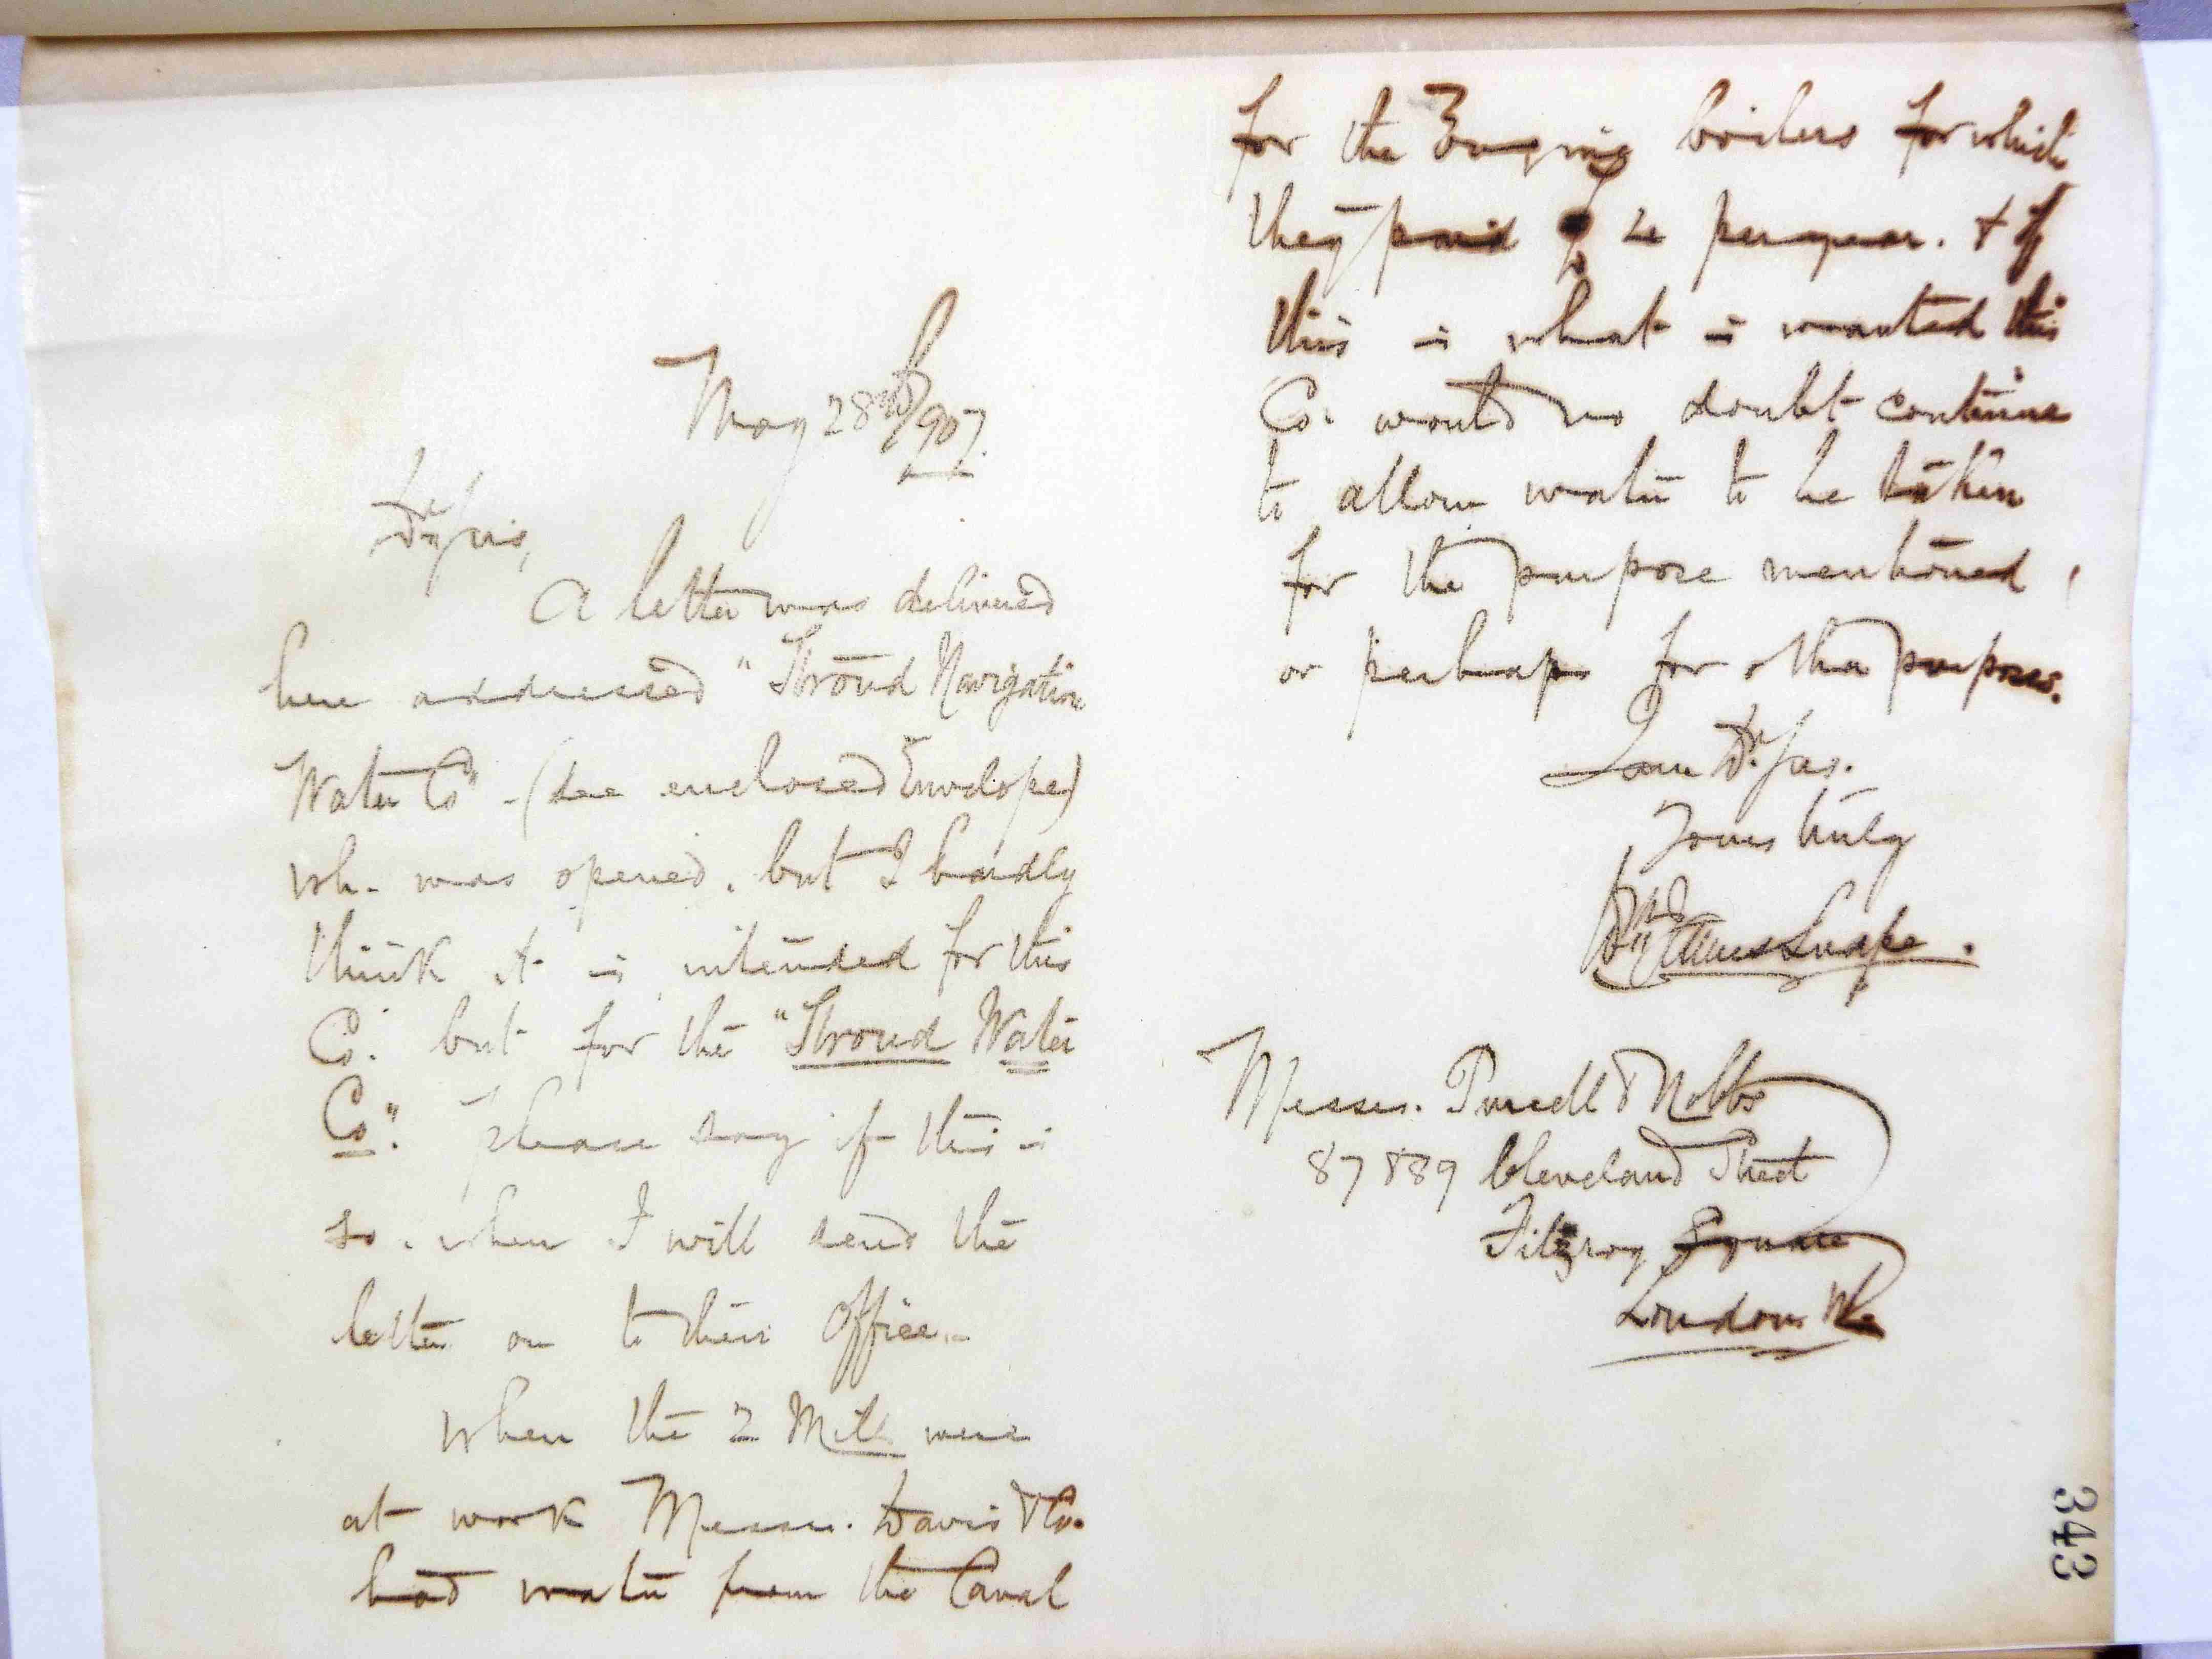 May 28th/907.
Dr Sirs,
A letter was delivered
here addressed "Stroud Navigation
Water Co" - (see enclosed Envelope)
wh. was opened, but I hardly
think it is intended for this
Co: but for the "Stroud Water
Co". Please say if this is
so. when I will send the
letter on to their Office.
When the 2 Mills were
at work Messrs. Davis & Co.
had water from the Canal
for the boilers for which
they paid per year. & if
this is what is wanted this
Co. would no doubt continue
to allow water to be taken
for the purpose mentioned,
or perhaps for other purposes.
I am Dr Sirs.
Yours truly
Wm James Snape.
Messrs. Purcell & Nobbs
87 & 89 Cleveland Street
Fitzroy Square
London W.
343